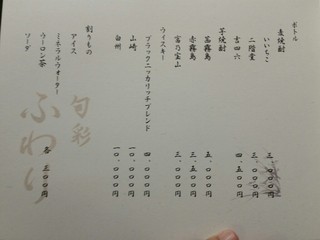 ボトル
麦焼酎
いいちこ 三、〇〇〇円
二階堂 三、〇〇〇円
吉四六 四、五〇〇円
芋焼酎
黒霧島 五、〇〇〇円
赤霧島 三、五〇〇円
富乃宝山 三、〇〇〇円
ウィスキー
ブラック・ニッカリッチブレンド 四、〇〇〇円
山崎 一〇、〇〇〇円
白州 一〇、〇〇〇円
割りもの
アイス
ミネラルウォーター
ウーロン茶 各 三〇〇円
ソーダ
旬彩
ふわり